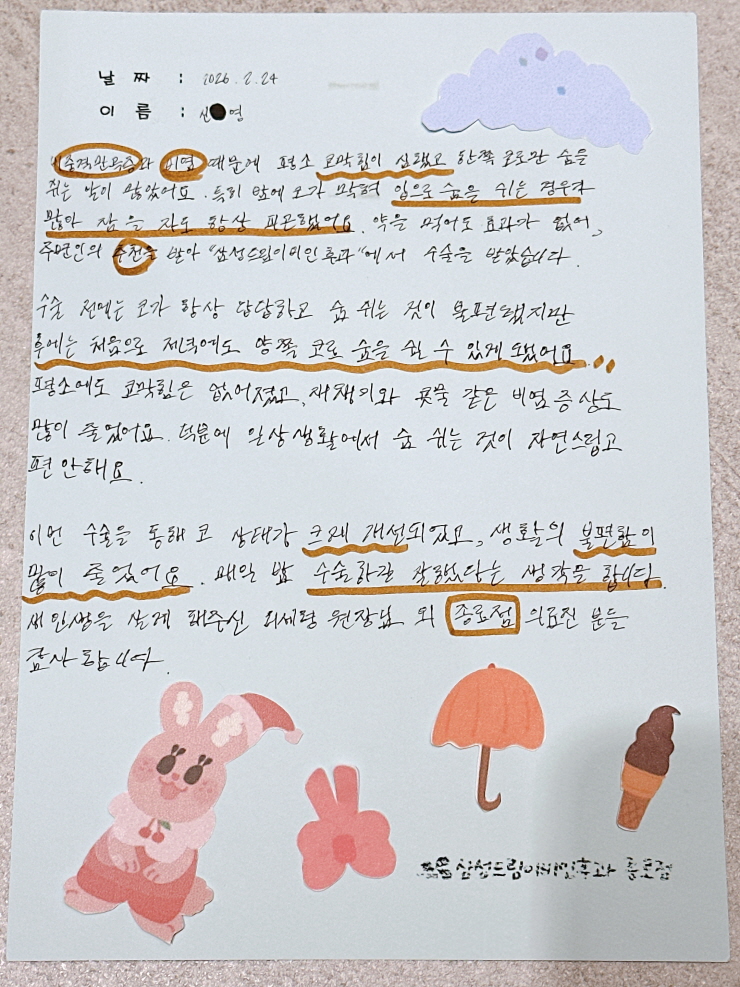 날 짜 : 2026. 2. 24
이 름 : 신 영
비중격만곡증과 비염 때문에 평소 코막힘이 심했고 한쪽 코로만 숨을
쉬는 일이 많았어요. 특히 밤에 코가 막혀 입으로 숨을 쉬는 경우가
많아 잠을 자도 항상 피곤했어요. 약을 먹어도 효과가 없어,
주변인의 추천을 받아 "삼성드림이비인후과"에서 수술을 받았습니다.
수술 전에는 코가 항상 답답하고 숨 쉬는 것이 불편했지만
후에는 처음으로 저녁에도 양쪽 코로 숨을 쉴 수 있게 되었어요...
평소에도 코막힘은 없어졌고, 재채기와 콧물 같은 비염 증상도
많이 줄었어요. 덕분에 일상생활에서 숨 쉬는 것이 자연스럽고
편안해요.
이번 수술을 통해 코 상태가 크게 개선되었고, 생활의 불편함이
많이 줄었어요. 매일 밤 수술하길 잘했다는 생각을 합니다.
새 인생을 살게 해주신 원장님 외 종로점 의료진 분들
감사합니다.
삼성드림이비인후과 종로점